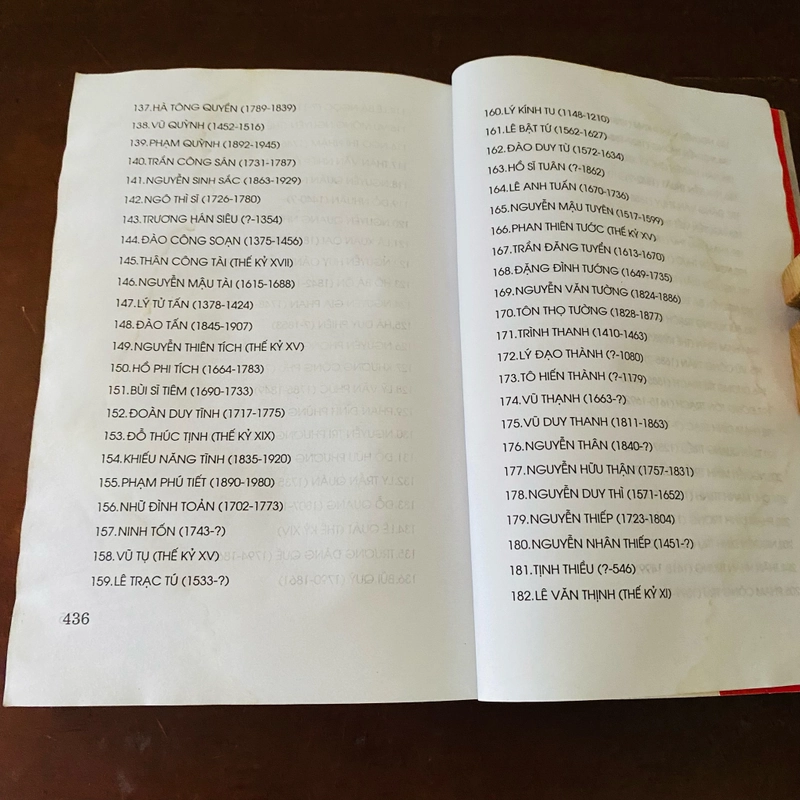 137.HÀ TÔNG QUYỀN (1789-1839)
138.VŨ QUỲNH (1452-1516)
139.PHẠM QUỲNH (1892-1945)
140.TRẦN CÔNG SÁN (1731-1787)
141.NGUYỄN SINH SẮC (1863-1929)
142.NGÔ THÌ SĨ (1726-1780)
143.TRƯƠNG HÁN SIÊU (?-1354)
144.ĐÀO CÔNG SOẠN (1375-1456)
145.THÂN CÔNG TÀI (THẾ KỶ XVII)
146.NGUYỄN MẬU TÀI (1615-1688)
147.LÝ TỬ TẤN (1378-1424)
148.ĐÀO TẤN (1845-1907)
149.NGUYỄN THIÊN TÍCH (THẾ KỶ XV)
150.HỒ PHI TÍCH (1664-1783)
151.BÙI SĨ TIÊM (1690-1733)
152.ĐOÀN DUY TĨNH (1717-1775)
153.ĐỖ THÚC TỊNH (THẾ KỶ XIX)
154.KHIẾU NĂNG TĨNH (1835-1920)
155.PHẠM PHÚ TIẾT (1890-1980)
156.NHỮ ĐÌNH TOẢN (1702-1773)
157.NINH TỐN (1743-?)
158.VŨ TỤ (THẾ KỶ XV)
159.LÊ TRẠC TÚ (1533-?)
436
160.LÝ KÍNH TU (1148-1210)
161.LÊ BẬT TỨ (1562-1627)
162.ĐÀO DUY TỪ (1572-1634)
163.HỒ SĨ TUÂN (?-1862)
164.LÊ ANH TUẤN (1670-1736)
165.NGUYỄN MẬU TUYÊN (1517-1599)
166.PHAN THIÊN TƯỚC (THẾ KỶ XV)
167.TRẦN ĐĂNG TUYỂN (1613-1670)
168.ĐẶNG ĐÌNH TƯỚNG (1649-1735)
169.NGUYỄN VĂN TƯỜNG (1824-1886)
170.TÔN THỌ TƯỜNG (1828-1877)
171.TRÌNH THANH (1410-1463)
172.LÝ ĐẠO THÀNH (?-1080)
173.TÔ HIẾN THÀNH (?-1179)
174.VŨ THẠNH (1663-?)
175.VŨ DUY THANH (1811-1863)
176.NGUYỄN THÂN (1840-?)
177.NGUYỄN HỮU THẬN (1757-1831)
178.NGUYỄN DUY THÌ (1571-1652)
179.NGUYỄN THIẾP (1723-1804)
180.NGUYỄN NHÂN THIẾP (1451-?)
181.TỊNH THIỀU (?-546)
182.LÊ VĂN THỊNH (THẾ KỶ XI)